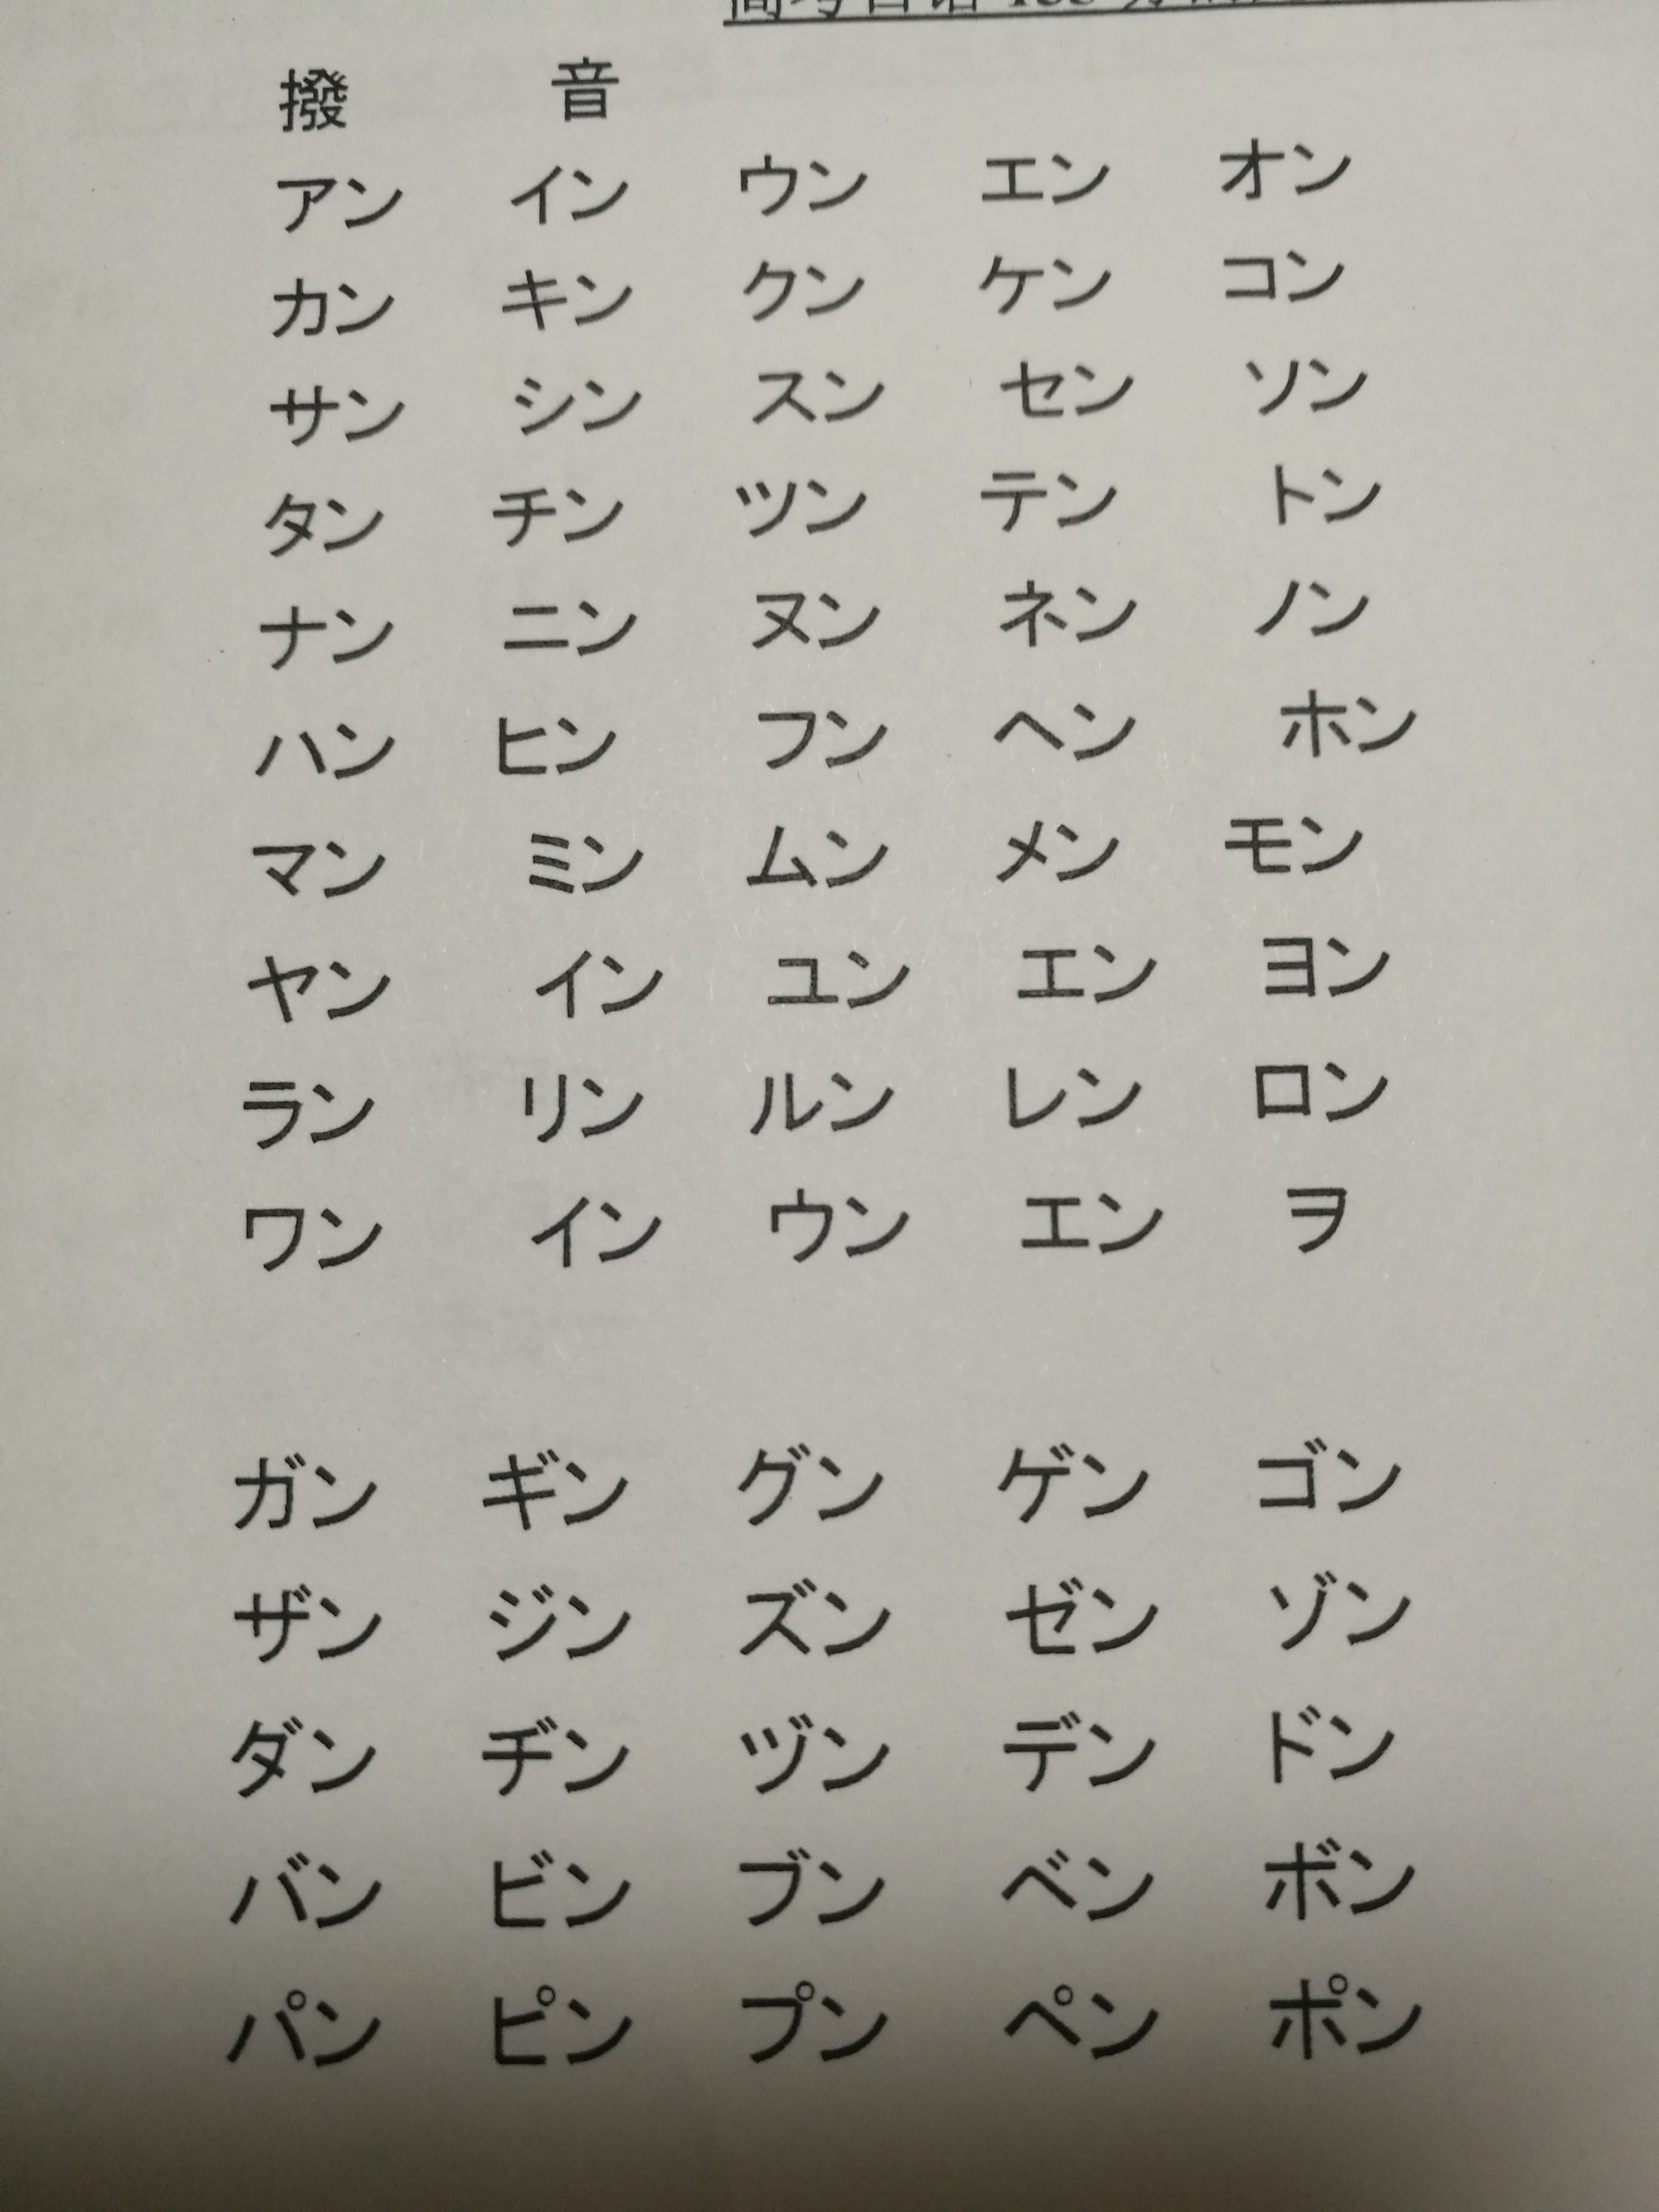 撥 音
アン イン ウン エン オン
カン キン クン ケン コン
サン シン スン セン ソン
タン チン ツン テン トン
ナン ニン ヌン ネン ノン
ハン ヒン フン ヘン ホン
マン ミン ムン メン モン
ヤン イン ユン エン ヨン
ラン リン ルン レン ロン
ワン イン ウン エン ヲ
ガン ギン グン ゲン ゴン
ザン ジン ズン ゼン ゾン
ダン ヂン ヅン デン ドン
バン ビン ブン ベン ボン
パン ピン プン ペン ポン